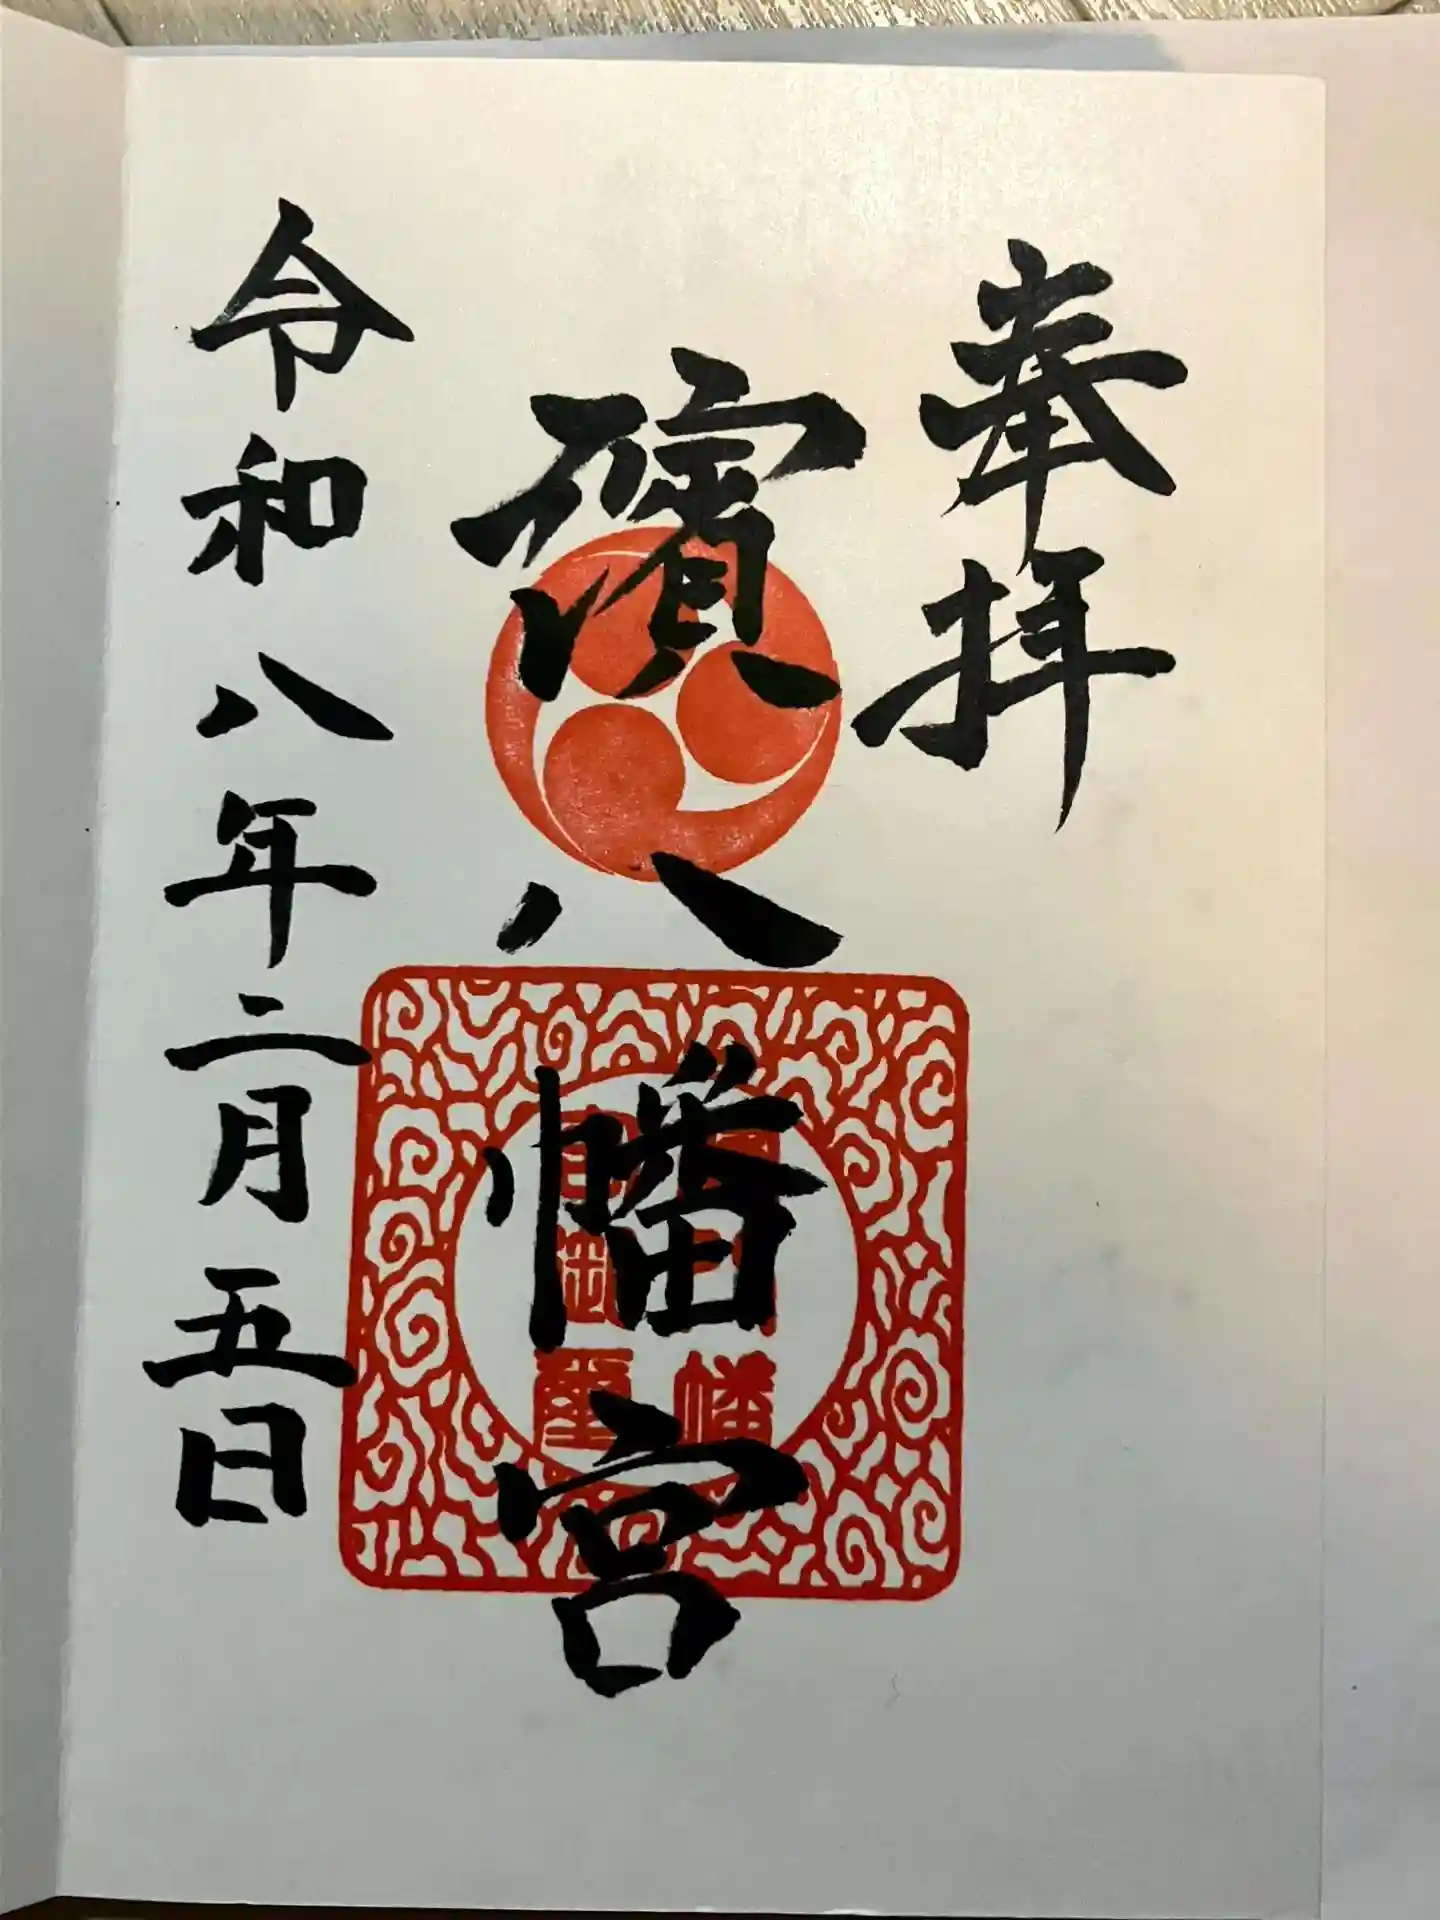 奉拝
八幡宮
令和八年二月五日